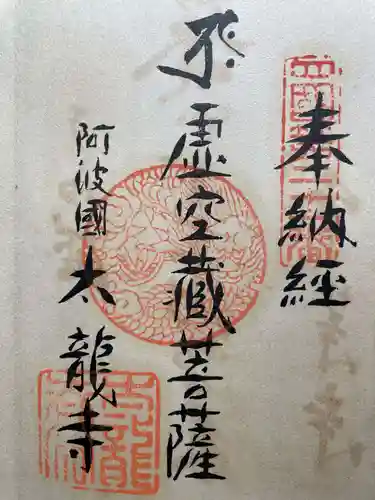 奉納経
虚空蔵菩薩
阿波國
太龍寺